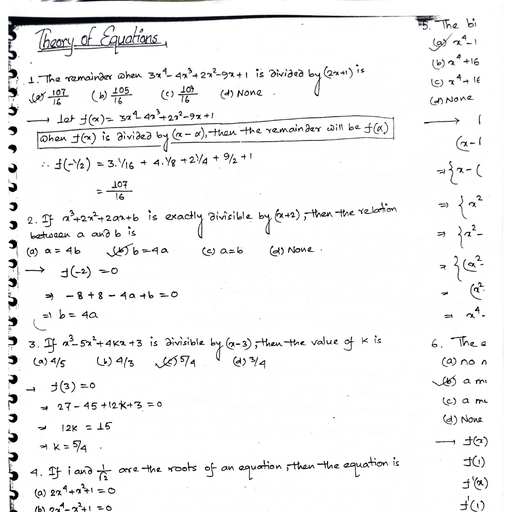 Theory of Equations.
1. The remainder when 3x⁴-4x³+2x²-9x+1 is divided by (2x+1) is
(a) 107/16 (b) 105/16 (c) 109/16 (d) None.
→ let f(x) = 3x⁴-4x³+2x²-9x+1
when f(x) is divided by (x-α), then the remainder will be f(α)
∴ f(-1/2) = 3.1/16 + 4.1/8 + 2.1/4 + 9/2 + 1
= 107/16
2. If x³+2x²+2ax+b is exactly divisible by (x+2), then the relation
between a and b is
(a) a = 4b (b) b = 4a (c) a = b (d) None.
→ f(-2) = 0
⇒ -8+8-4a+b = 0
⇒ b = 4a
3. If x³-5x²+4kx+3 is divisible by (x-3), then the value of k is
(a) 4/5 (b) 4/3 (c) 5/4 (d) 3/4
→ f(3) = 0
⇒ 27-45+12k+3 = 0
⇒ 12k = 15
⇒ k = 5/4.
4. If i and 1/√2 are the roots of an equation, then the equation is
(a) 2x⁴+x²+1 = 0
(b) 2x⁴-x²+1 = 0
5. The bi
(a) x⁴-1
(b) x⁴+16
(c) x⁴+1
(d) None
→
(x-1
⇒ {x-(
⇒ {x²
⇒ {x²-
= {(x²-
= (x²
= x⁴-
6. The
(a) no
(b) a
(c) a
(d) None
→ f(x)
f(1)
f'(x)
f'(1)